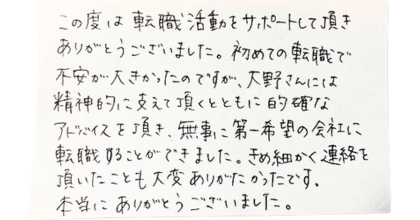 この度は転職活動をサポートして頂き
ありがとうございました。初めての転職で
不安が大きかったのですが、大野さんには
精神的に支えて頂くとともに的確な
アドバイスを頂き、無事に第一希望の会社に
転職することができました。きめ細かく連絡を
頂いたことも大変ありがたかったです。
本当にありがとうございました。